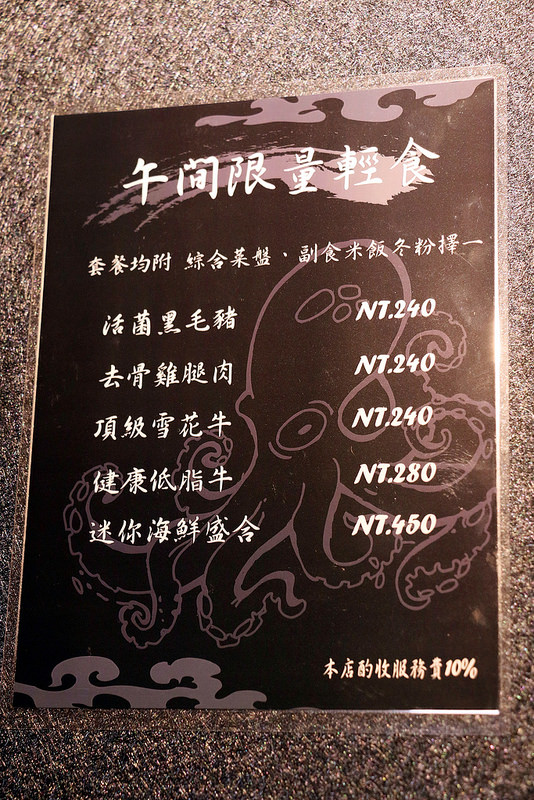 午間限量輕食
套餐均附 綜合菜盤、副食米飯冬粉擇一
活菌黑毛豬 NT.240
去骨雞腿肉 NT.240
頂級雪花牛 NT.240
健康低脂牛 NT.280
迷你海鮮盛合 NT.450
本店酌收服務費10%